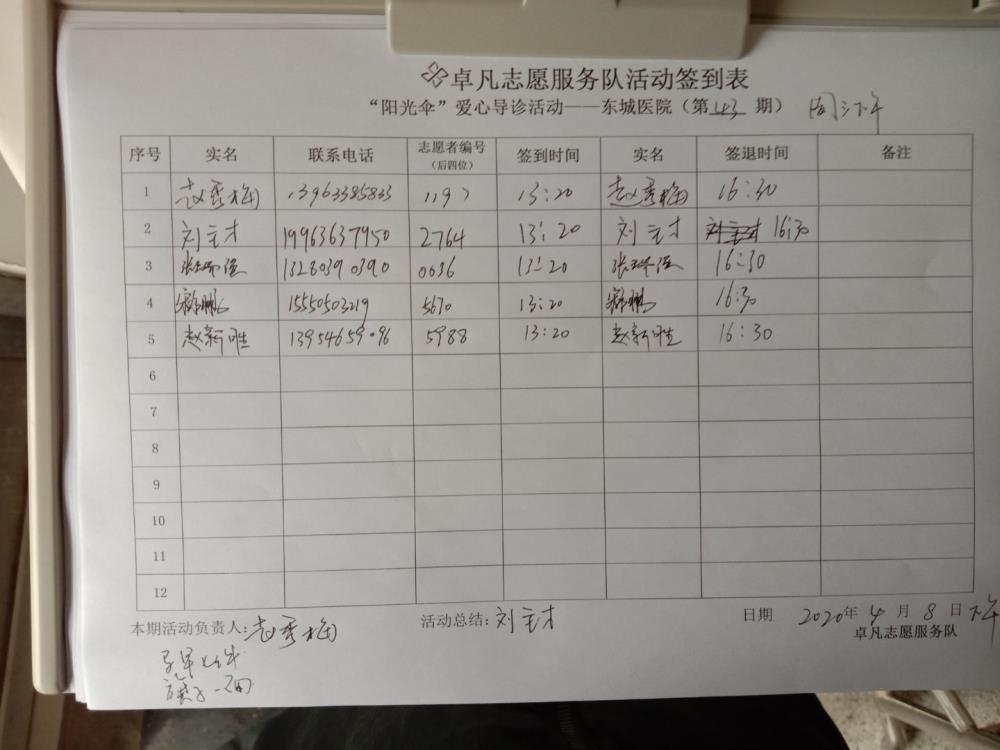 卓凡志愿服务队活动签到表
“阳光伞”爱心导诊活动——东城医院（第143期） 周三下午
序号 实名 联系电话 志愿者编号（后四位） 签到时间 实名 签退时间 备注
1 赵秀梅 13963385833 1197 13:20 赵秀梅 16:30
2 刘主才 19963637950 2764 13:20 刘主才 刘主才 16:30
3 13280390390 0636 13:20 16:30
4 15550503219 5670 13:20 16:30
5 赵新胜 13954659096 5988 13:20 赵新胜 16:30
6
7
8
9
10
11
12
本期活动负责人：赵秀梅 活动总结：刘主才 日期 2020年4月8日下午
卓凡志愿服务队